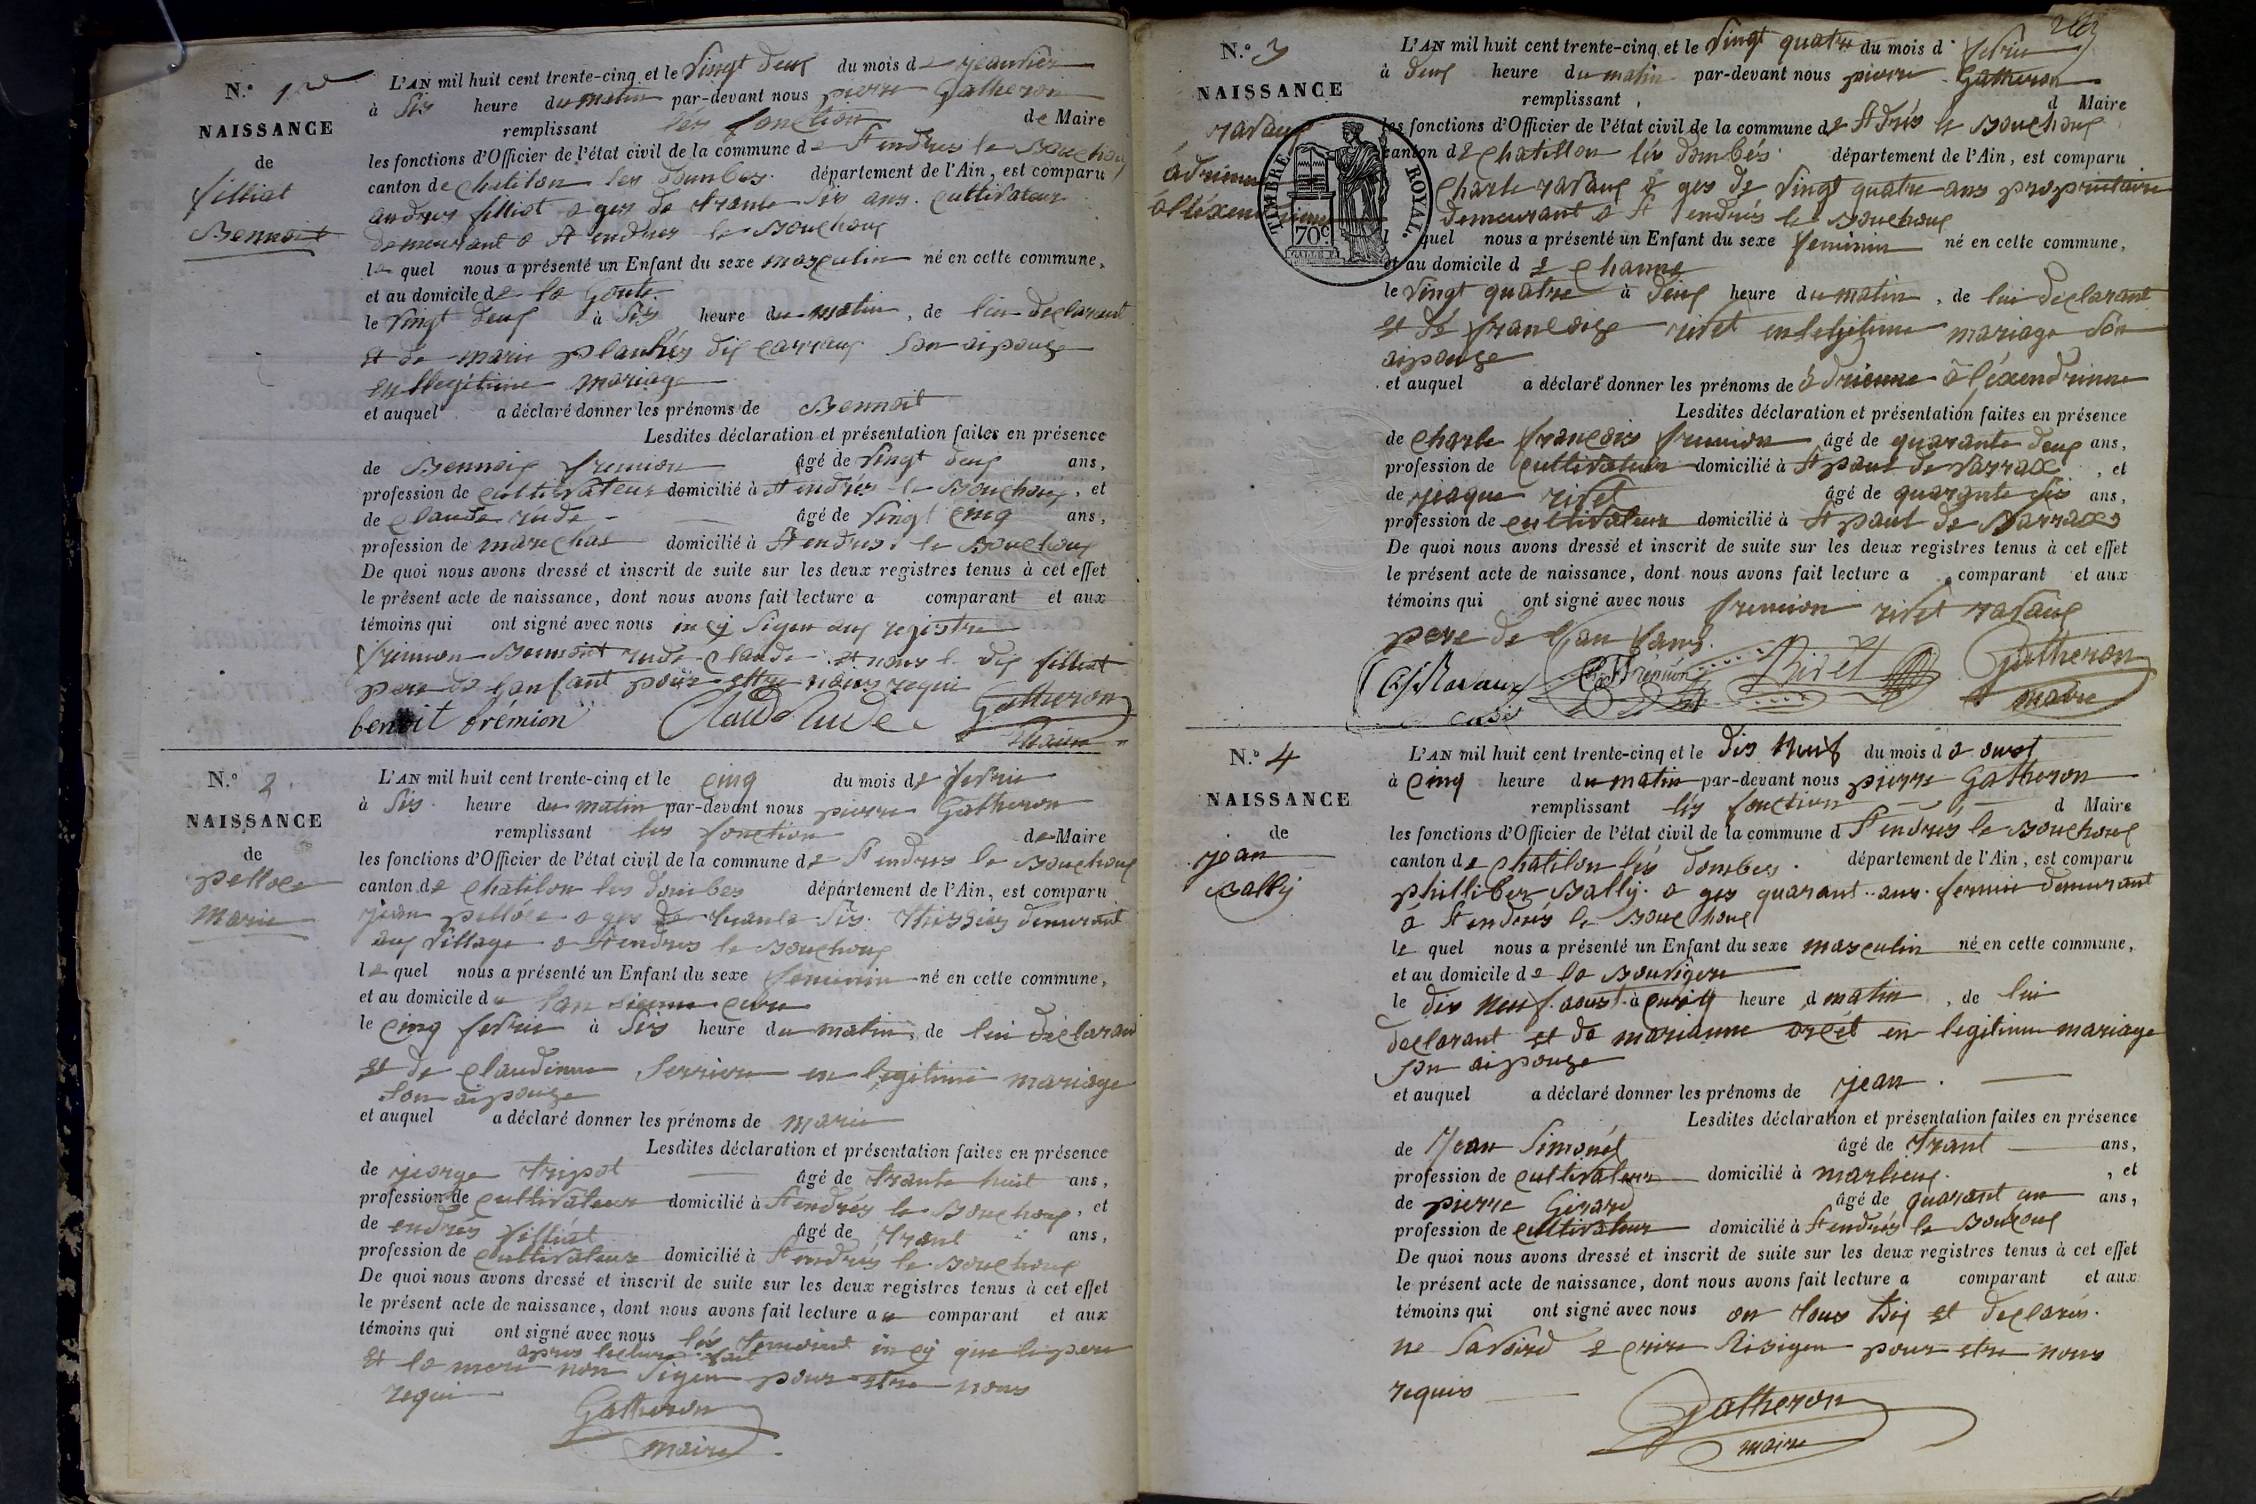 N.º 1er
NAISSANCE
de
filliat
Bennoit
L'AN mil huit cent trente-cinq et le Vingt deux du mois de jeanvier
à Sis heure du matin par-devant nous pierre Gatheron
remplissant les fonction de Maire
les fonctions d'Officier de l'état civil de la commune de St endres le Bouchoux
canton de Chatilon les Dombes. département de l'Ain, est comparu
andres filliat a ges de trante Sis ans. cultivateur
demeurant a St endres le Bouchoux
le quel nous a présenté un Enfant du sexe masculin né en cette commune,
et au domicile de la Goute.
le Vingt deux à Sis heure du matin, de lui declarant
et de marie dis carraux Son aipouze
en llegitime mariage
et auquel a déclaré donner les prénoms de Bennoit
Lesdites déclaration et présentation faites en présence
de Bennois fremion âgé de Vingt deux ans,
profession de cultivateur domicilié à St endrés le Bouchoux, et
de Claude rude âgé de Vingt cinq ans,
profession de marechal domicilié à St endres le Bouchoux
De quoi nous avons dressé et inscrit de suite sur les deux registres tenus à cet effet
le présent acte de naissance, dont nous avons fait lecture a comparant et aux
témoins qui ont signé avec nous in cy Signe aux registre
fremion Bennoit rude Claude et nous le dis filliat
pere de lanfant pour ettre nous requi Gatheron
benoit frémion Claude Rude Maire
N.º 2
NAISSANCE
de
pelloce
Marie
L'AN mil huit cent trente-cinq et le cinq du mois de fevrie
à Sis heure du matin par-devant nous pierre Gatheron
remplissant les fonction de Maire
les fonctions d'Officier de l'état civil de la commune de St endres le Bouchoux
canton de Chatilon les Dombes département de l'Ain, est comparu
jean pelloce a ges de trante Sis. thissies demurant
aux Village a St endres le Bouchoux
le quel nous a présenté un Enfant du sexe feminin né en cette commune,
et au domicile du lan sienne cure
le cinq fevrie à Sis heure du matin, de lui déclarand
et de claudinne Serriere en legitime mariage
Son aipouze
et auquel a déclaré donner les prénoms de marie
Lesdites déclaration et présentation faites en présence
de jeorge tripot âgé de trante huit ans,
profession de cultivateur domicilié à St endrés le Bouchoux, et
de endrés filliat âgé de trant ans,
profession de cultivateur domicilié à St endrés le Bouchoux
De quoi nous avons dressé et inscrit de suite sur les deux registres tenus à cet effet
le présent acte de naissance, dont nous avons fait lecture au comparant et aux
témoins qui ont signé avec nous les temoint in cy que le pere
apres lecture fait
et la mere non Signe pour etre nous
requi
Gatheron
maire
N.º 3
NAISSANCE
ravaux
adrienne
TIMBRE ROYAL.
70c
L'AN mil huit cent trente-cinq et le Vingt quatre du mois d fevrie
à deux heure du matin par-devant nous pierre Gatheron
remplissant d Maire
les fonctions d'Officier de l'état civil de la commune de St drés le Bouchoux
canton de Chatillon lés dombés département de l'Ain, est comparu
Charle ravaux a ges de Vingt quatre ans propriutaire
demeurant a St endrés le Bouchoux
l quel nous a présenté un Enfant du sexe feminin né en cette commune,
et au domicile de Channe
le Vingt quatre à deux heure du matin, de lui declarant
et dé francoize rivet en letgitime mariage Son
aipouze
et auquel a déclaré donner les prénoms de adrienne aléxendrinne
Lesdites déclaration et présentation faites en présence
de Charle françois fremion âgé de quarante deux ans,
profession de cultivateur domicilié à St paul de Varrax, et
de jeaque rivet âgé de quarante sis ans,
profession de cultivateur domicilié à St paul de Varrax
De quoi nous avons dressé et inscrit de suite sur les deux registres tenus à cet effet
le présent acte de naissance, dont nous avons fait lecture a comparant et aux
témoins qui ont signé avec nous fremion rivet ravaux
pere de lan fans.
Ravaux Frémion Rivet Gatheron
cadet maire
N.º 4
NAISSANCE
de
jean
Bally
L'AN mil huit cent trente-cinq et le dis Neuf du mois d a oust
à cinq heure du matin par-devant nous pierre Gatheron
remplissant lés fonction d Maire
les fonctions d'Officier de l'état civil de la commune d St endrés le Bouchoux
canton de Chatilon lés Dombes. département de l'Ain, est comparu
philliber Bally. a ges quarant ans. fermie demurant
a St endrés le Bouchoux
le quel nous a présenté un Enfant du sexe masculin né en cette commune,
et au domicile de la
le dis neuf aoust à cinq heure d matin, de lui
declarant et de marianne orcét en legitime mariage
Son aipouze
et auquel a déclaré donner les prénoms de jean.
Lesdites déclaration et présentation faites en présence
de Jean Simonét âgé de trant ans,
profession de cultivateur domicilié à marlieux., et
de pierre Girard âgé de quarant un ans,
profession de cultivateur domicilié à St endrés le Bouchoux
De quoi nous avons dressé et inscrit de suite sur les deux registres tenus à cet effet
le présent acte de naissance, dont nous avons fait lecture a comparant et aux
témoins qui ont signé avec nous on tous dis et declarés.
ne Savoird ecrire Nisigne pour etre nous
requis
Gatheron
maire